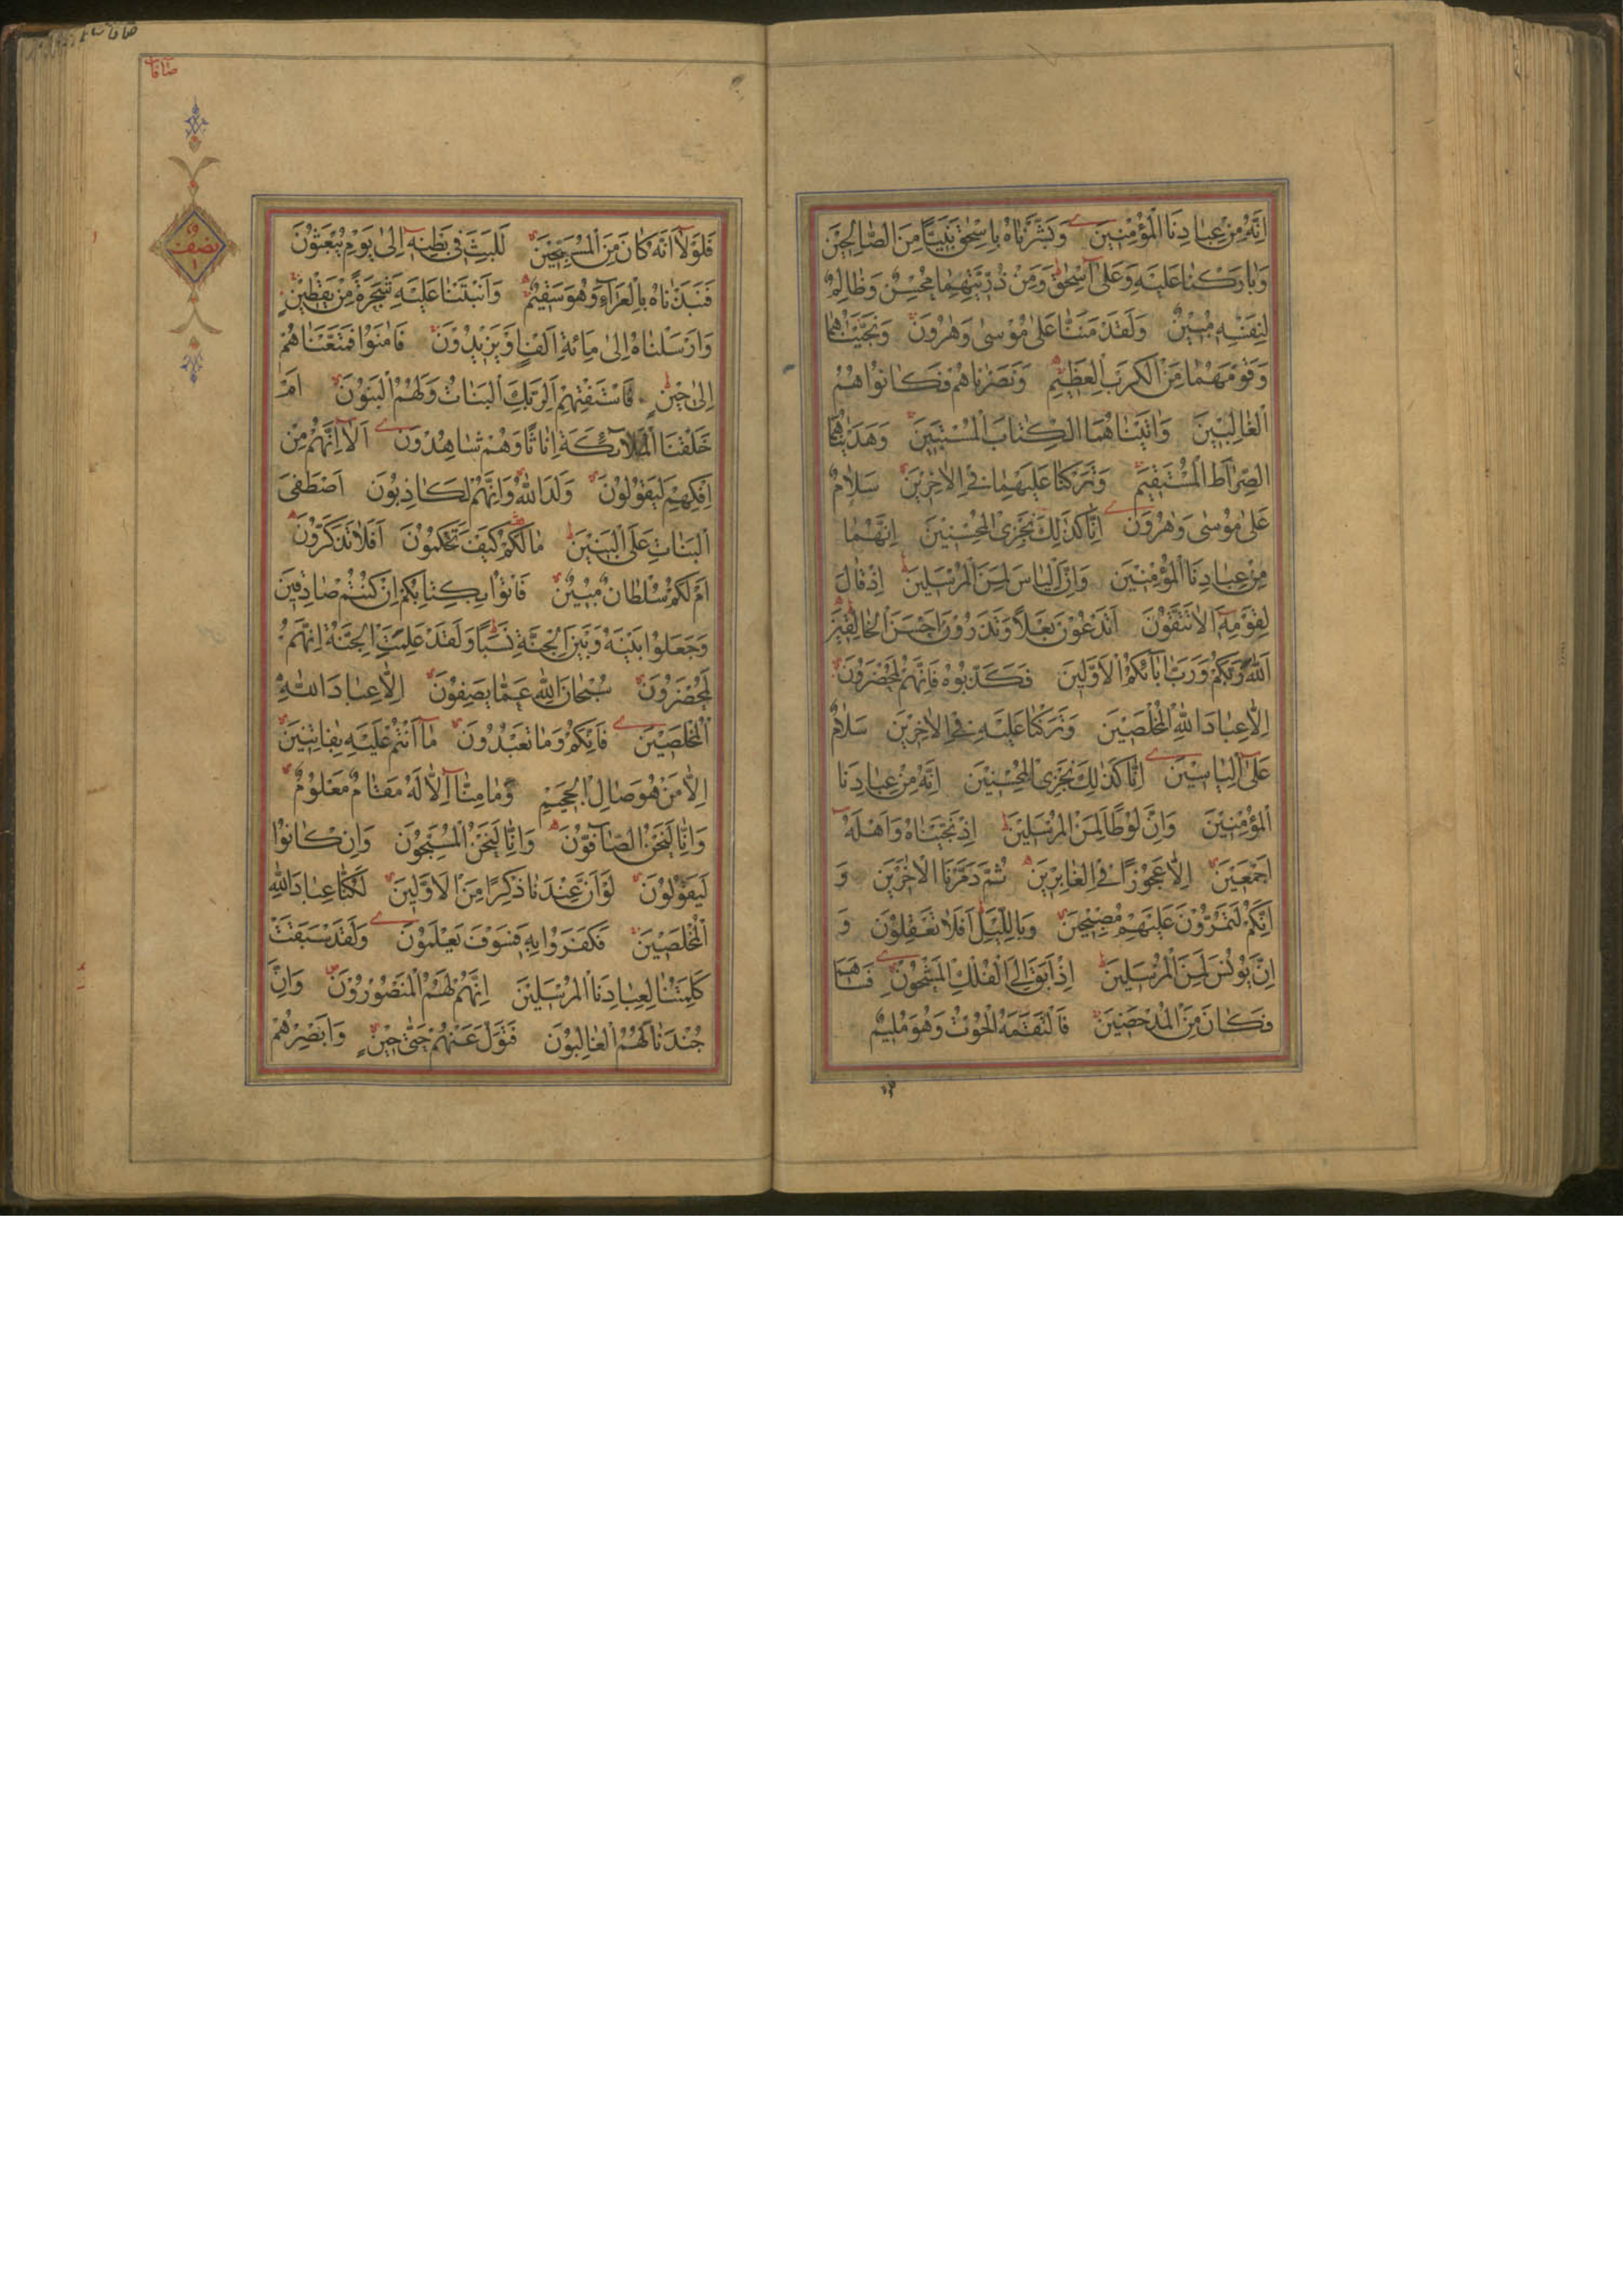 اِنَّهُ مِنْ عِبَادِنَا الْمُؤْمِنِينَ وَبَشَّرْنَاهُ بِاِسْحٰقَ نَبِيًّا مِنَ الصَّالِحِينَ
وَبَارَكْنَا عَلَيْهِ وَعَلٰى اِسْحٰقَ وَمِنْ ذُرِّيَّتِهِمَا مُحْسِنٌ وَظَالِمٌ
لِنَفْسِهِ مُبِينٌ وَلَقَدْ مَنَنَّا عَلٰى مُوسٰى وَهٰرُونَ وَنَجَّيْنَاهُمَا
وَقَوْمَهُمَا مِنَ الْكَرْبِ الْعَظِيمِ وَنَصَرْنَاهُمْ فَكَانُوا هُمُ
الْغَالِبِينَ وَاٰتَيْنَاهُمَا الْكِتَابَ الْمُسْتَبِينَ وَهَدَيْنَاهُمَا
الصِّرَاطَ الْمُسْتَقِيمَ وَتَرَكْنَا عَلَيْهِمَا فِي الْاٰخِرِينَ سَلَامٌ
عَلٰى مُوسٰى وَهٰرُونَ اِنَّا كَذٰلِكَ نَجْزِي الْمُحْسِنِينَ اِنَّهُمَا
مِنْ عِبَادِنَا الْمُؤْمِنِينَ وَاِنَّ اِلْيَاسَ لَمِنَ الْمُرْسَلِينَ اِذْ قَالَ
لِقَوْمِهِ اَلَا تَتَّقُونَ اَتَدْعُونَ بَعْلًا وَتَذَرُونَ اَحْسَنَ الْخَالِقِينَ
اَللّٰهَ رَبَّكُمْ وَرَبَّ اٰبَائِكُمُ الْاَوَّلِينَ فَكَذَّبُوهُ فَاِنَّهُمْ لَمُحْضَرُونَ
اِلَّا عِبَادَ اللّٰهِ الْمُخْلَصِينَ وَتَرَكْنَا عَلَيْهِ فِي الْاٰخِرِينَ سَلَامٌ
عَلٰى اِلْيَاسِينَ اِنَّا كَذٰلِكَ نَجْزِي الْمُحْسِنِينَ اِنَّهُ مِنْ عِبَادِنَا
الْمُؤْمِنِينَ وَاِنَّ لُوطًا لَمِنَ الْمُرْسَلِينَ اِذْ نَجَّيْنَاهُ وَاَهْلَهُ
اَجْمَعِينَ اِلَّا عَجُوزًا فِي الْغَابِرِينَ ثُمَّ دَمَّرْنَا الْاٰخَرِينَ وَ
اِنَّكُمْ لَتَمُرُّونَ عَلَيْهِمْ مُصْبِحِينَ وَبِاللَّيْلِ اَفَلَا تَعْقِلُونَ وَ
اِنَّ يُونُسَ لَمِنَ الْمُرْسَلِينَ اِذْ اَبَقَ اِلَى الْفُلْكِ الْمَشْحُونِ فَسَاهَمَ
فَكَانَ مِنَ الْمُدْحَضِينَ فَالْتَقَمَهُ الْحُوتُ وَهُوَ مُلِيمٌ
صافات
نصف
فَلَوْلَا اَنَّهُ كَانَ مِنَ الْمُسَبِّحِينَ لَلَبِثَ فِي بَطْنِهِ اِلٰى يَوْمِ يُبْعَثُونَ
فَنَبَذْنَاهُ بِالْعَرَاءِ وَهُوَ سَقِيمٌ وَاَنْبَتْنَا عَلَيْهِ شَجَرَةً مِنْ يَقْطِينٍ
وَاَرْسَلْنَاهُ اِلٰى مِائَةِ اَلْفٍ اَوْ يَزِيدُونَ فَاٰمَنُوا فَمَتَّعْنَاهُمْ
اِلٰى حِينٍ فَاسْتَفْتِهِمْ اَلِرَبِّكَ الْبَنَاتُ وَلَهُمُ الْبَنُونَ اَمْ
خَلَقْنَا الْمَلَائِكَةَ اِنَاثًا وَهُمْ شَاهِدُونَ اَلَا اِنَّهُمْ مِنْ
اِفْكِهِمْ لَيَقُولُونَ وَلَدَ اللّٰهُ وَاِنَّهُمْ لَكَاذِبُونَ اَصْطَفَى
الْبَنَاتِ عَلَى الْبَنِينَ مَا لَكُمْ كَيْفَ تَحْكُمُونَ اَفَلَا تَذَكَّرُونَ
اَمْ لَكُمْ سُلْطَانٌ مُبِينٌ فَأْتُوا بِكِتَابِكُمْ اِنْ كُنْتُمْ صَادِقِينَ
وَجَعَلُوا بَيْنَهُ وَبَيْنَ الْجِنَّةِ نَسَبًا وَلَقَدْ عَلِمَتِ الْجِنَّةُ اِنَّهُمْ
لَمُحْضَرُونَ سُبْحَانَ اللّٰهِ عَمَّا يَصِفُونَ اِلَّا عِبَادَ اللّٰهِ
الْمُخْلَصِينَ فَاِنَّكُمْ وَمَا تَعْبُدُونَ مَا اَنْتُمْ عَلَيْهِ بِفَاتِنِينَ
اِلَّا مَنْ هُوَ صَالِ الْجَحِيمِ وَمَا مِنَّا اِلَّا لَهُ مَقَامٌ مَعْلُومٌ
وَاِنَّا لَنَحْنُ الصَّافُّونَ وَاِنَّا لَنَحْنُ الْمُسَبِّحُونَ وَاِنْ كَانُوا
لَيَقُولُونَ لَوْ اَنَّ عِنْدَنَا ذِكْرًا مِنَ الْاَوَّلِينَ لَكُنَّا عِبَادَ اللّٰهِ
الْمُخْلَصِينَ فَكَفَرُوا بِهِ فَسَوْفَ يَعْلَمُونَ وَلَقَدْ سَبَقَتْ
كَلِمَتُنَا لِعِبَادِنَا الْمُرْسَلِينَ اِنَّهُمْ لَهُمُ الْمَنْصُورُونَ وَاِنَّ
جُنْدَنَا لَهُمُ الْغَالِبُونَ فَتَوَلَّ عَنْهُمْ حَتّٰى حِينٍ وَاَبْصِرْهُمْ